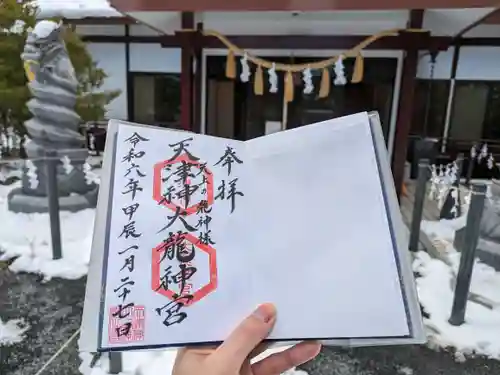 奉拝
天上の飛神様
天津神大龍神宮
令和六年甲辰一月二十七日